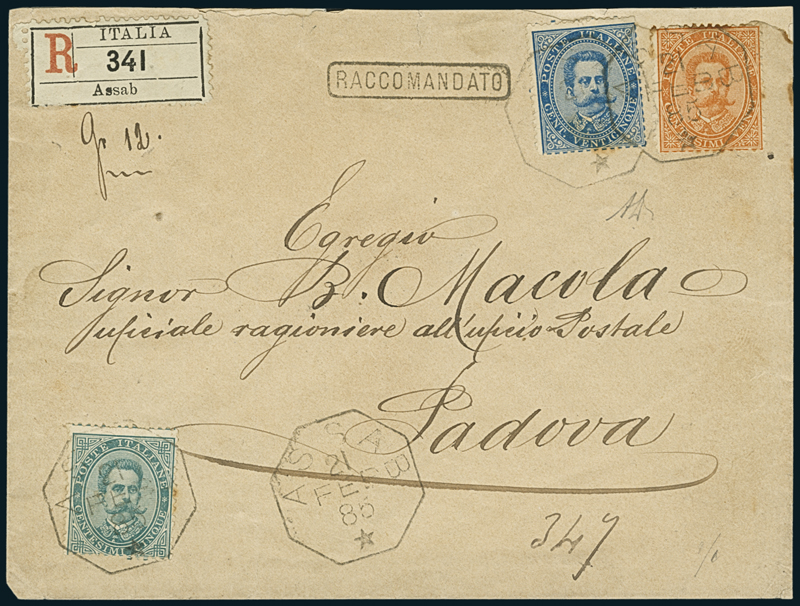 R ITALIA
341
Assab
RACCOMANDATO
POSTE ITALIANE
CENT. VENTICINQUE
POSTE ITALIANE
CENTESIMI VENTI
Gr 12.
Egregio
Signor B. Macola
uficiale ragioniere all'uficio Postale
Padova
POSTE ITALIANE
CENTESIMI CINQUE
ASSAB
85
347